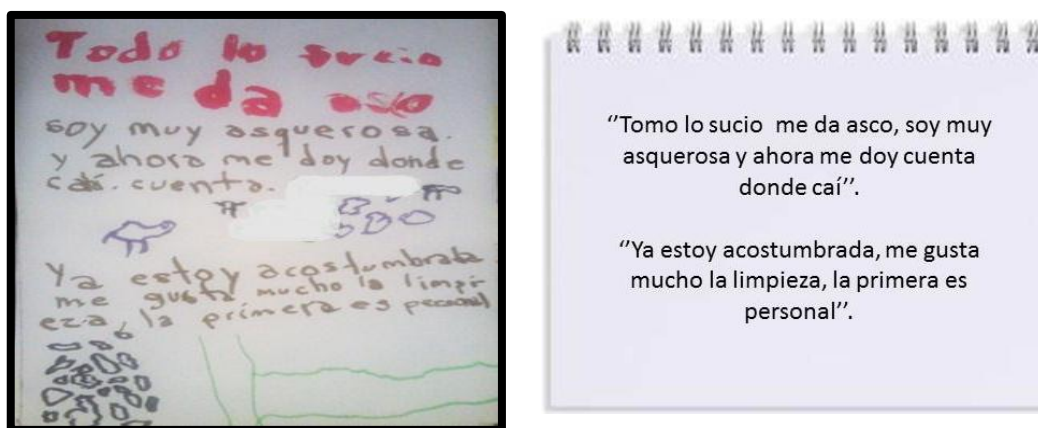 Todo lo sucio
me da asio
soy muy asquerosa.
y ahora me doy donde
caí. cuenta.
Ya estoy acostumbrada
me gusta mucho la limpi
eza, la primera es personal
‘’Tomo lo sucio me da asco, soy muy
asquerosa y ahora me doy cuenta
donde caí’’.
‘’Ya estoy acostumbrada, me gusta
mucho la limpieza, la primera es
personal’’.